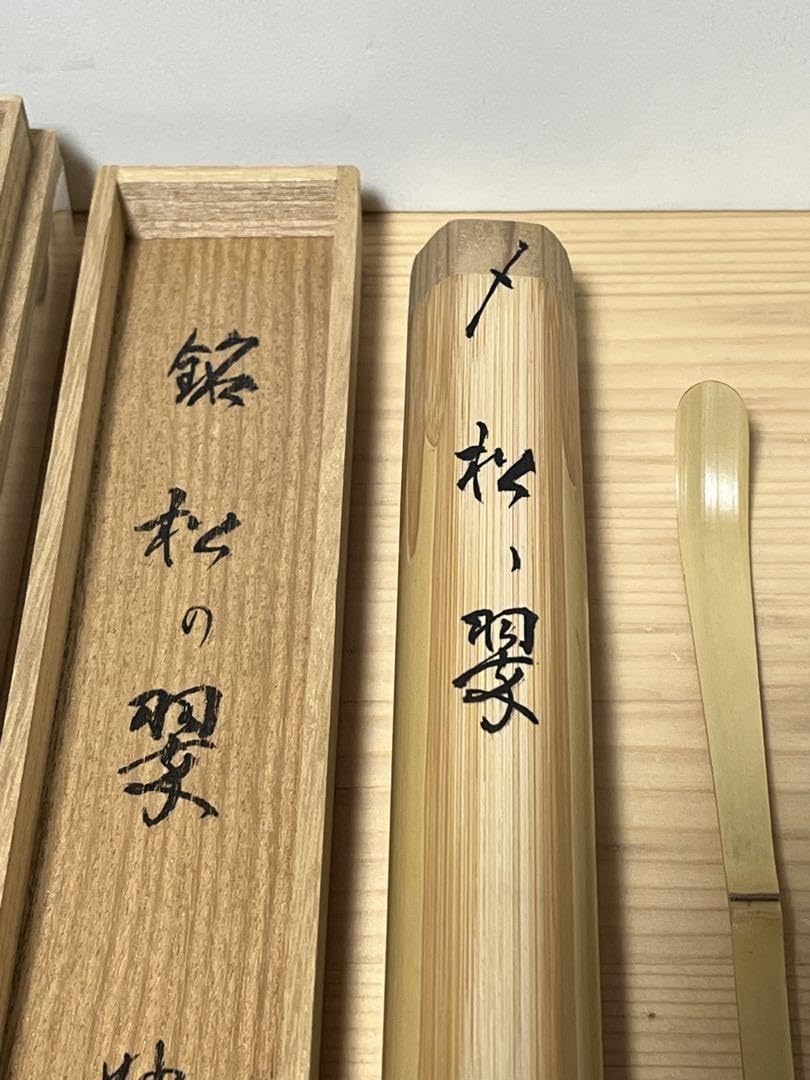 銘
松の翠
〆
松ヽ翠